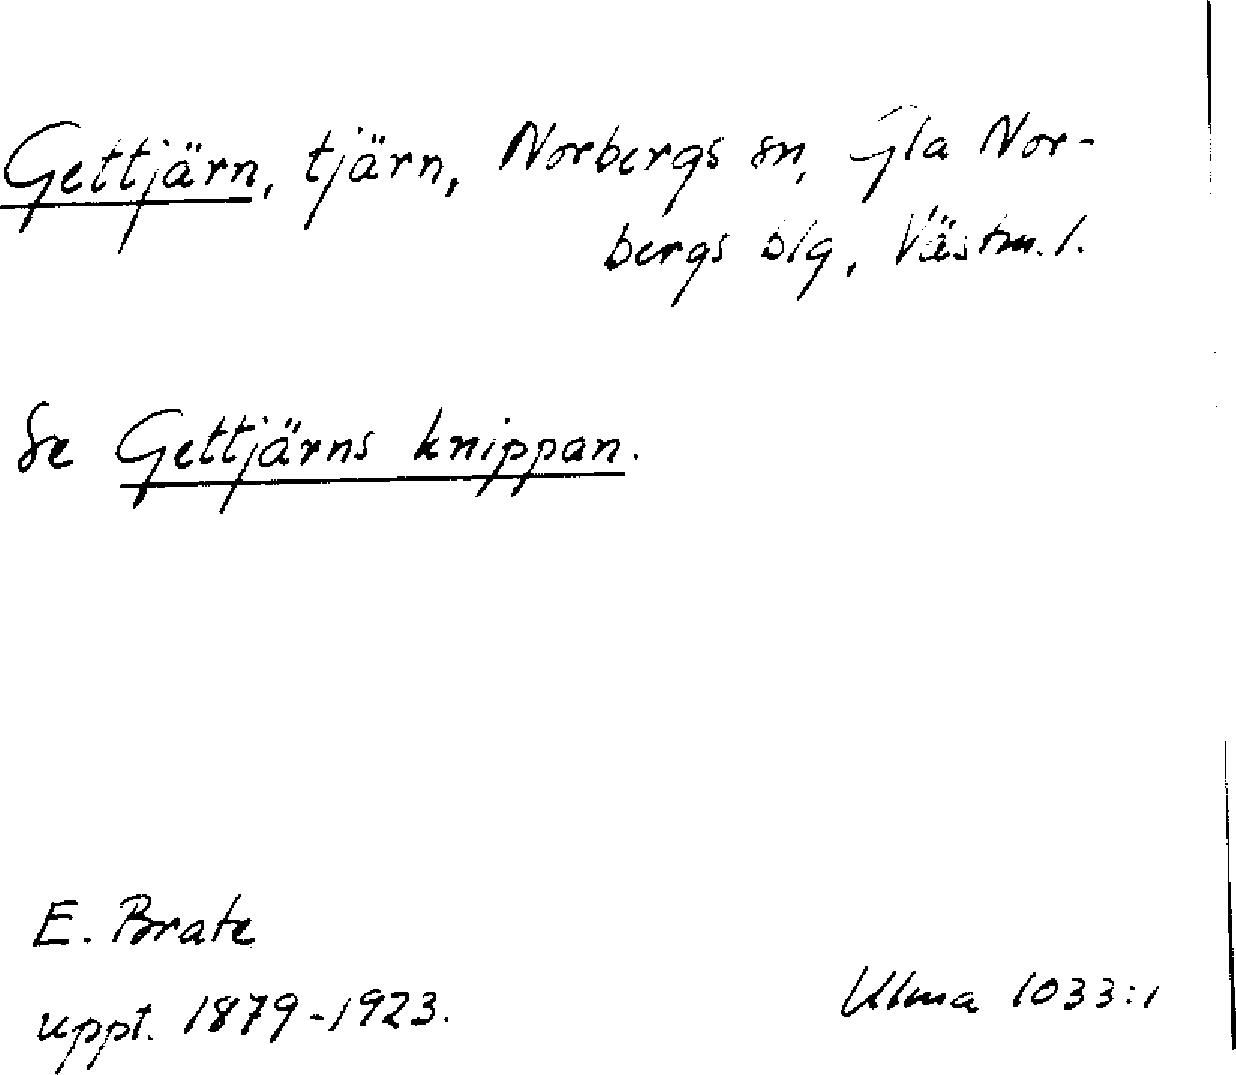 Gettjärn, tjärn, Norbergs sn, Gla Nor-
bergs blg, Västm. l.
Se Gettjärns knippan.
E. Brate
uppt. 1879-1923.
Ulma 1033:1